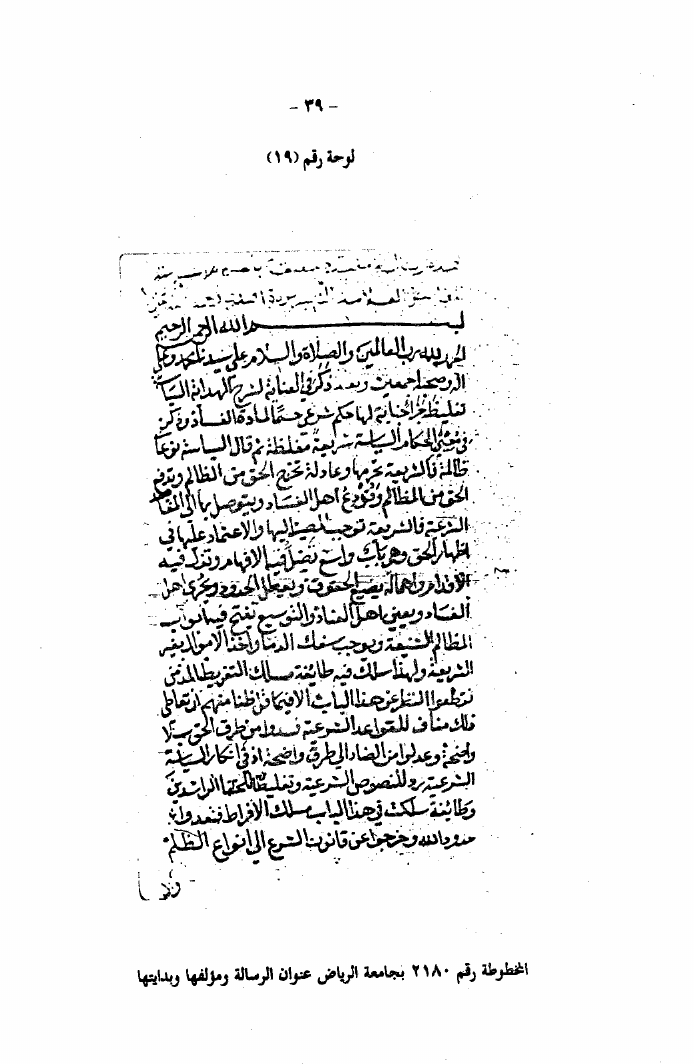 - ٣٩ -
لوحة رقم (١٩)
بسم الله الرحمن الرحيم
الحمد لله رب العالمين والصلاة والسلام على سيدنا محمد وعلى
اله وصحبه اجمعين وبعد ذكر في العناية لشرح الهداية السياسة
تغليظ جزا جناية لها حكم شرعي حسما لمادة الفساد وذكر
في معين الحكام السياسة شريعة مغلظة ثم قال السياسة نوعا
ظالمة فالشريعة تحرمها وعادلة تخرج الحق من الظالم وتدفع
من المظالم وتردع اهل الفساد ويتوصل بها الى المقاصد
الشرعية فالشريعة توجب المصير اليها والاعتماد عليها في
اظهار الحق وهي باب واسع تضل فيها الافهام وتزل فيه
الاقدام واهماله يضيع الحقوق ويعطل الحدود ويجرى اهل
الفساد ويعين اهل العناد والتوسيع يفتح فيها ابواب
المظالم الشنيعة ويوجب سفك الدما واخذ الاموال بغير
الشريعة ولهذا سلك فيه طائفة مسلك التفريط المذموم
فقطعوا النظر عن هذا الباب الا فيما قل ظنا منهم ان تعاطي
ذلك مناف للقواعد الشرعية فسدوا من طرق الحق سبلا
واضحة وعدلوا من الى طرق واضحة اذ في انكار السياسة
الشرعية رد للنصوص الشرعية وتغليط للخلفا الراشدين
وطائفة سلكت في هذا الباب مسلك الافراط فتعدوا
حدود الله وخرجوا عن قانون الشرع الى انواع الظلم
المخطوطة رقم ٢١٨٠ بجامعة الرياض عنوان الرسالة ومؤلفها وبدايتها